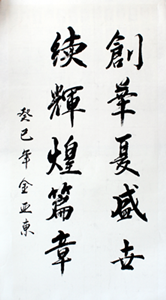 創華夏盛世
续輝煌篇章
癸巳年金亚東